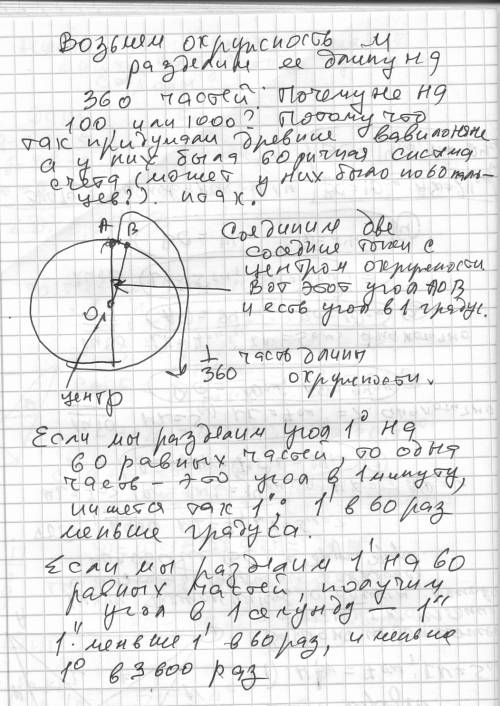 Возьмем окружность и
разделим ее длину на
360 частей. Почему не на
100 или 1000? Потому что
так придумали древние вавилоняне
а у них была 60 ричная система
счета (может у них было по 60 паль-
цев?). пока х.
А В
Соединим две
соседние точки с
центром окружности
Вот этот угол АОВ
и есть угол в 1 градус.
О
1/360 часть длины
окружности.
центр
Если мы разделим угол 1° на
60 равных частей, то одна
часть – это угол в 1 минуту,
пишется так 1'; 1' в 60 раз
меньше градуса.
Если мы разделим 1' на 60
равных частей, получим
угол в 1 секунду — 1"
1" меньше 1' в 60 раз, и меньше
1° в 3600 раз